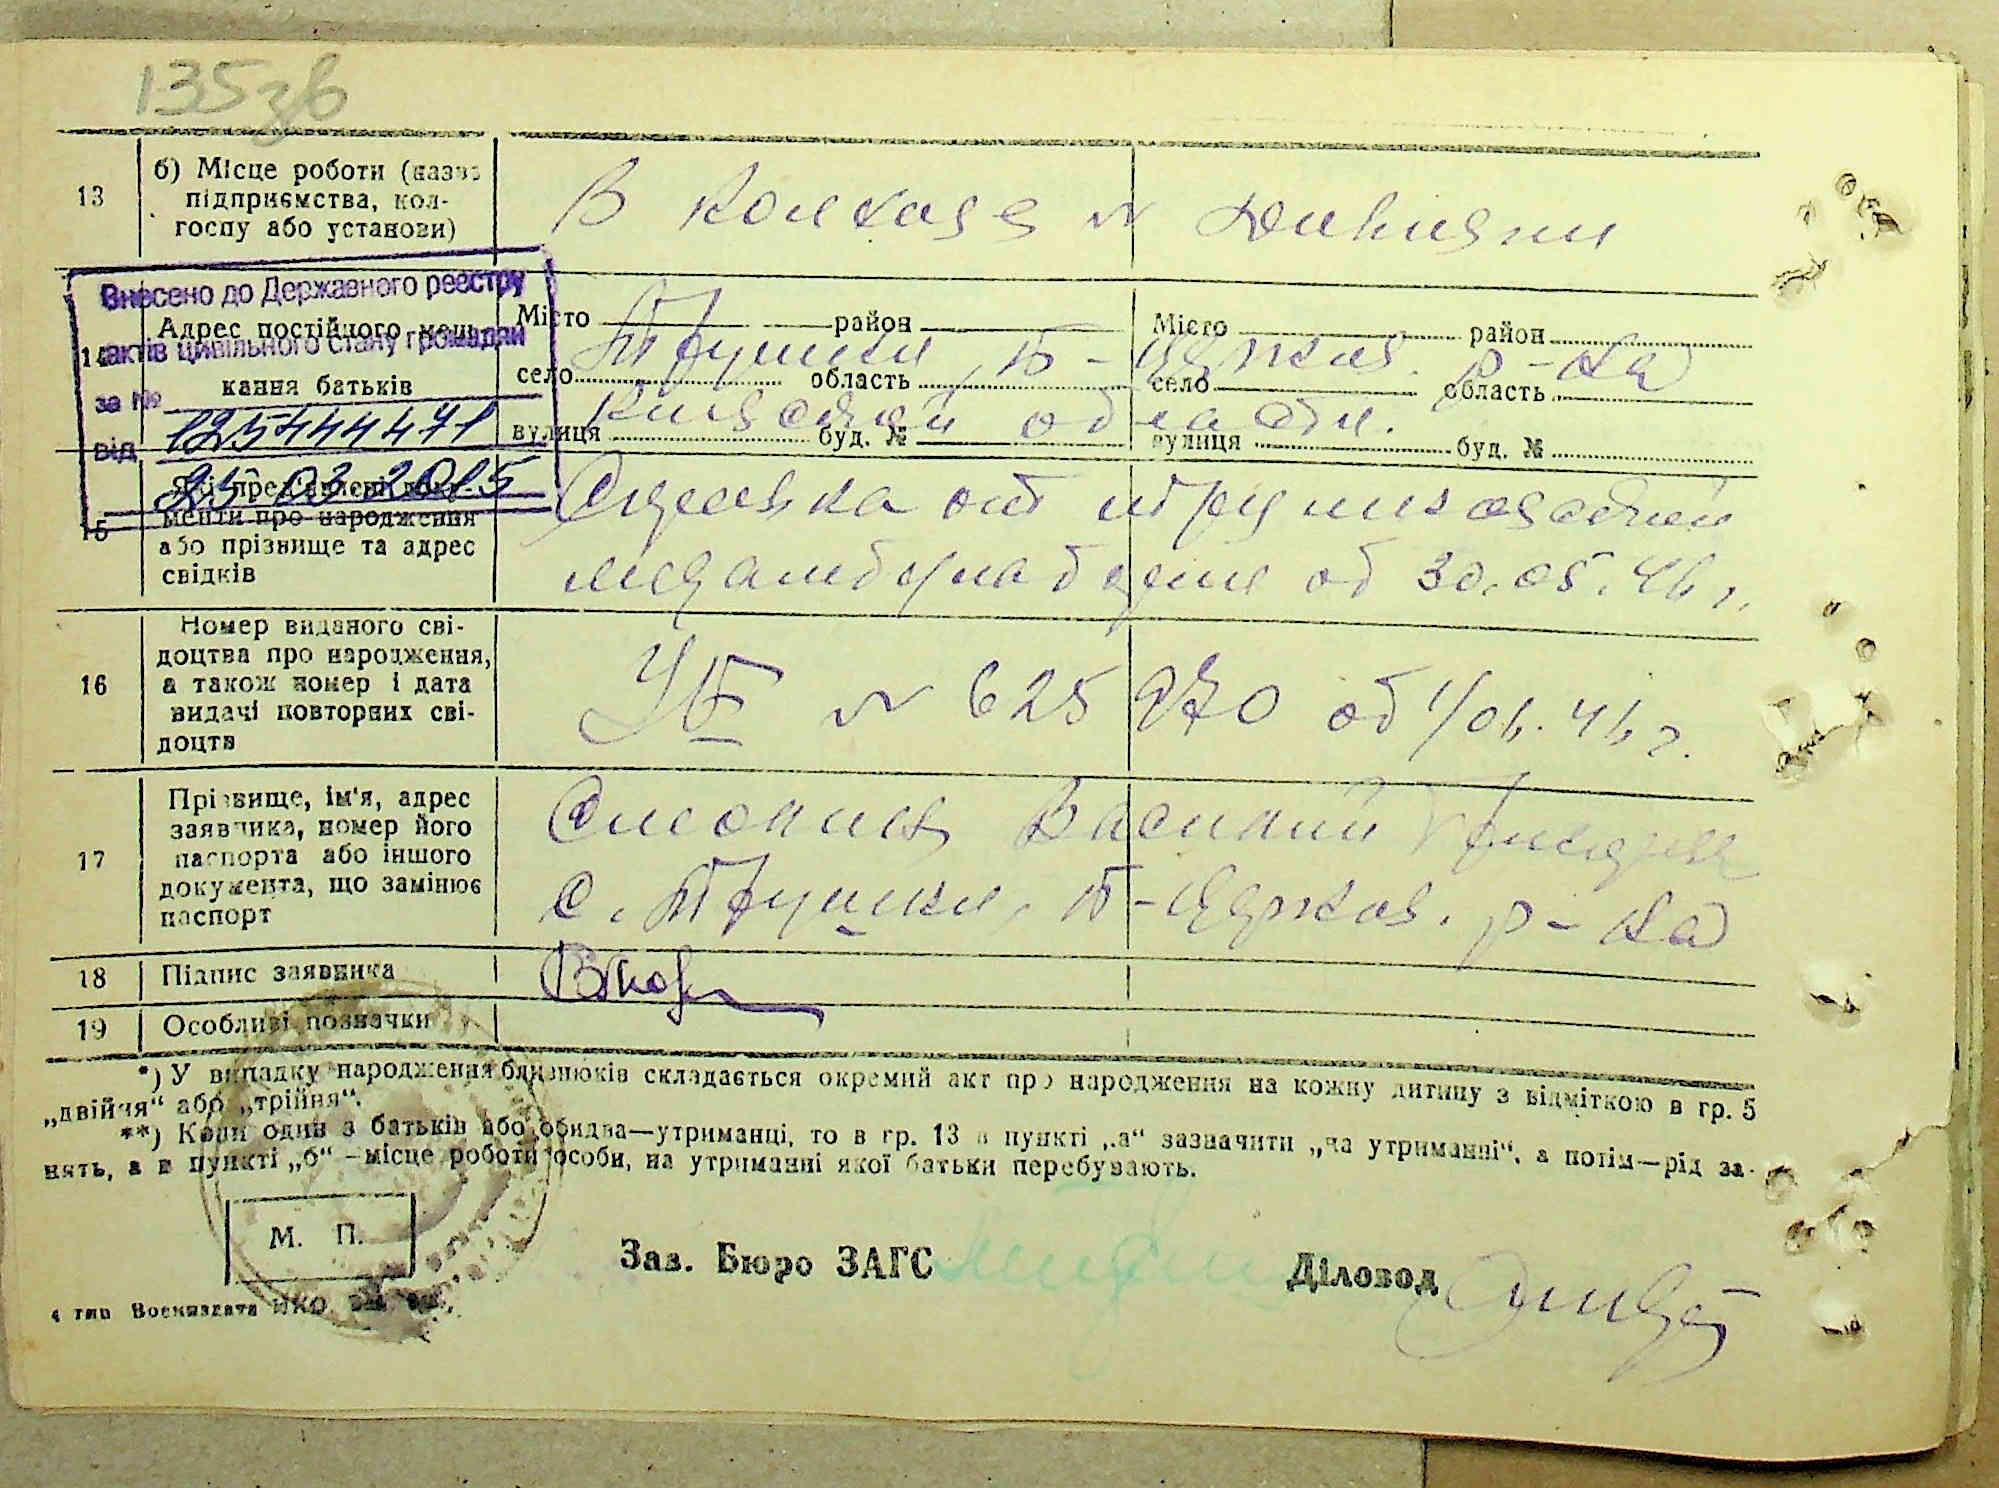 135зв
13
б) Місце роботи (назва
підприємства, кол-
госпу або установи)
В колхозе
Внесено до Державного реєстру
актів цивільного стану громадян
за №
125444471
від
25 03 2015
14
Адрес постійного меш-
кання батьків
Місто район Місто район
село область село область
вулиця буд. № вулиця буд. №
Трушки, Б-Церков. р-на
Киевской области.
15
Які пред'явлені доку-
менти про народження
або прізвище та адрес
свідків
Справка от
от 30.05.46 г.
16
Номер виданого сві-
доцтва про народження,
а також номер і дата
видачі повторних сві-
доцтв
УБ № 625970 от 1/06.46 г.
17
Прізвище, ім'я, адрес
заявника, номер його
паспорта або іншого
документа, що замінює
паспорт
Василий
с. Трушки, Б-Церков. р-на
18
Підпис заявника
19
Особливі позначки
*) У випадку народження близнюків складається окремий акт про народження на кожну дитину з відміткою в гр. 5
„двійня“ або „трійня“.
**) Коли один з батьків або обидва—утриманці, то в гр. 13 в пункті „а“ зазначити „на утриманні“, а потім—рід за-
нять, а в пункті „б“ –місце роботи особи, на утриманні якої батьки перебувають.
М. П.
Зав. Бюро ЗАГС
Діловод
4 тип Воениздата НКО